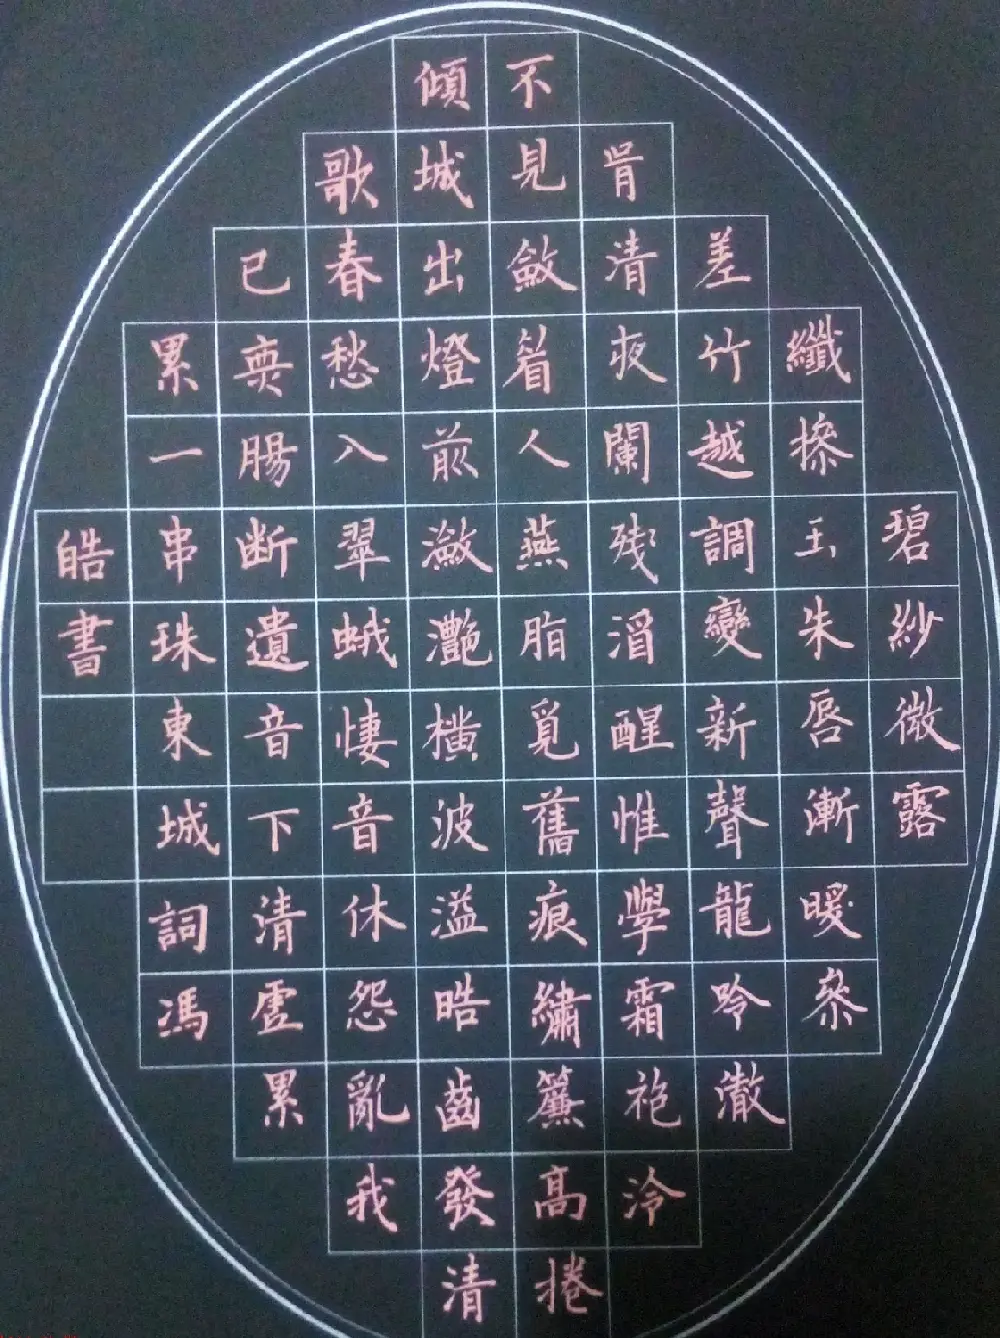 碧紗微露
纖摻玉朱唇漸暖參
差竹越調變新聲龍吟澈
肯清夜闌殘酒醒惟學霜袍泠
不見斂眉人燕脂覓舊痕繡簾高捲
傾城出燈前瀲灧橫波溢皓齒發清
歌春愁入翠蛾悽音休怨亂我
已無腸斷遺音下清虛累
累一串珠東城詞馮
皓書